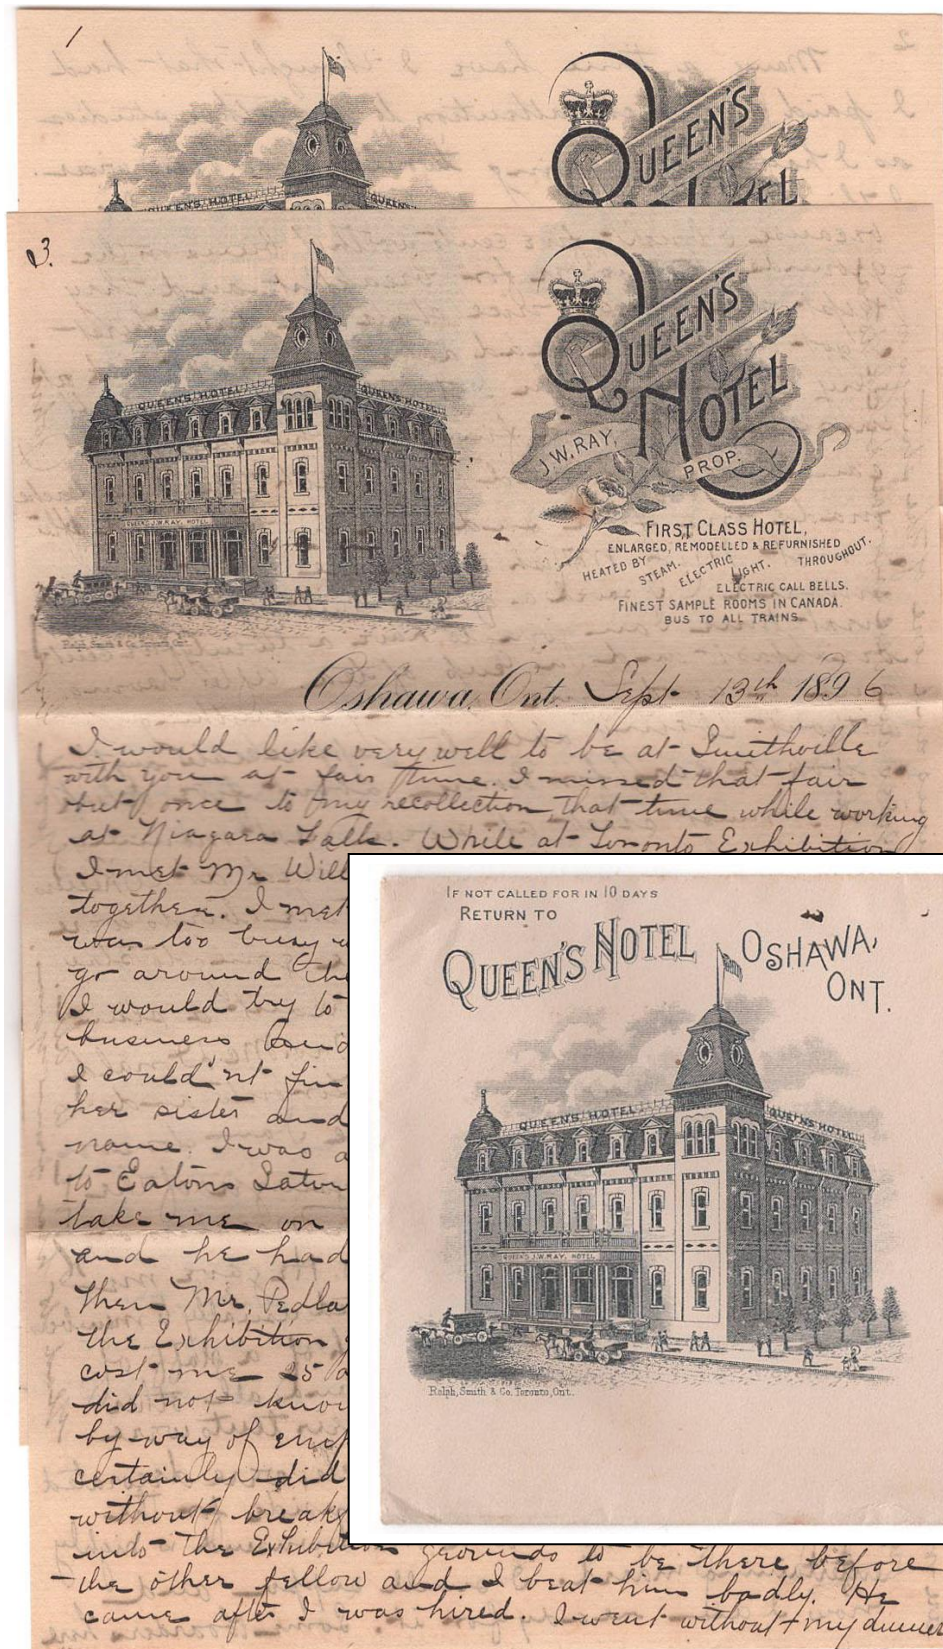 1
2
QUEEN'S HOTEL
QUEEN'S
QUEEN'S
HOTEL
3.
QUEEN'S HOTEL
QUEENS HOTEL
QUEEN'S
HOTEL
J.W. RAY,
PROP.
QUEEN'S J.W. RAY, HOTEL
FIRST CLASS HOTEL,
ENLARGED, REMODELLED & REFURNISHED
HEATED BY STEAM. ELECTRIC LIGHT. THROUGHOUT.
ELECTRIC CALL BELLS.
FINEST SAMPLE ROOMS IN CANADA.
BUS TO ALL TRAINS.
Ralph, Smith & Co. Toronto, Ont.
Oshawa, Ont. Sept 13th 1896
I would like very well to be at Smithville
with you at fair time. I missed that fair
but once to my recollection that time while working
at Niagara Falls. While at Toronto Exhibition
I met Mr Will
together. I met
was too busy
go around the
I would try to
business
I could'nt fin
her sister and
name. I was a
to Eatons Satur
take me on
and he had
then Mr. Pedla
the Exhibition
cost me 25
did not know
by way of
certainly did
without breakf
into the Exhibition grounds to be there before
the other fellow and I beat him badly. He
came after I was hired. I went without my dinner
IF NOT CALLED FOR IN 10 DAYS
RETURN TO
QUEEN'S HOTEL OSHAWA,
ONT.
QUEEN'S HOTEL
QUEEN'S HOTEL
QUEEN'S J.W. RAY, HOTEL
Ralph, Smith & Co. Toronto, Ont.